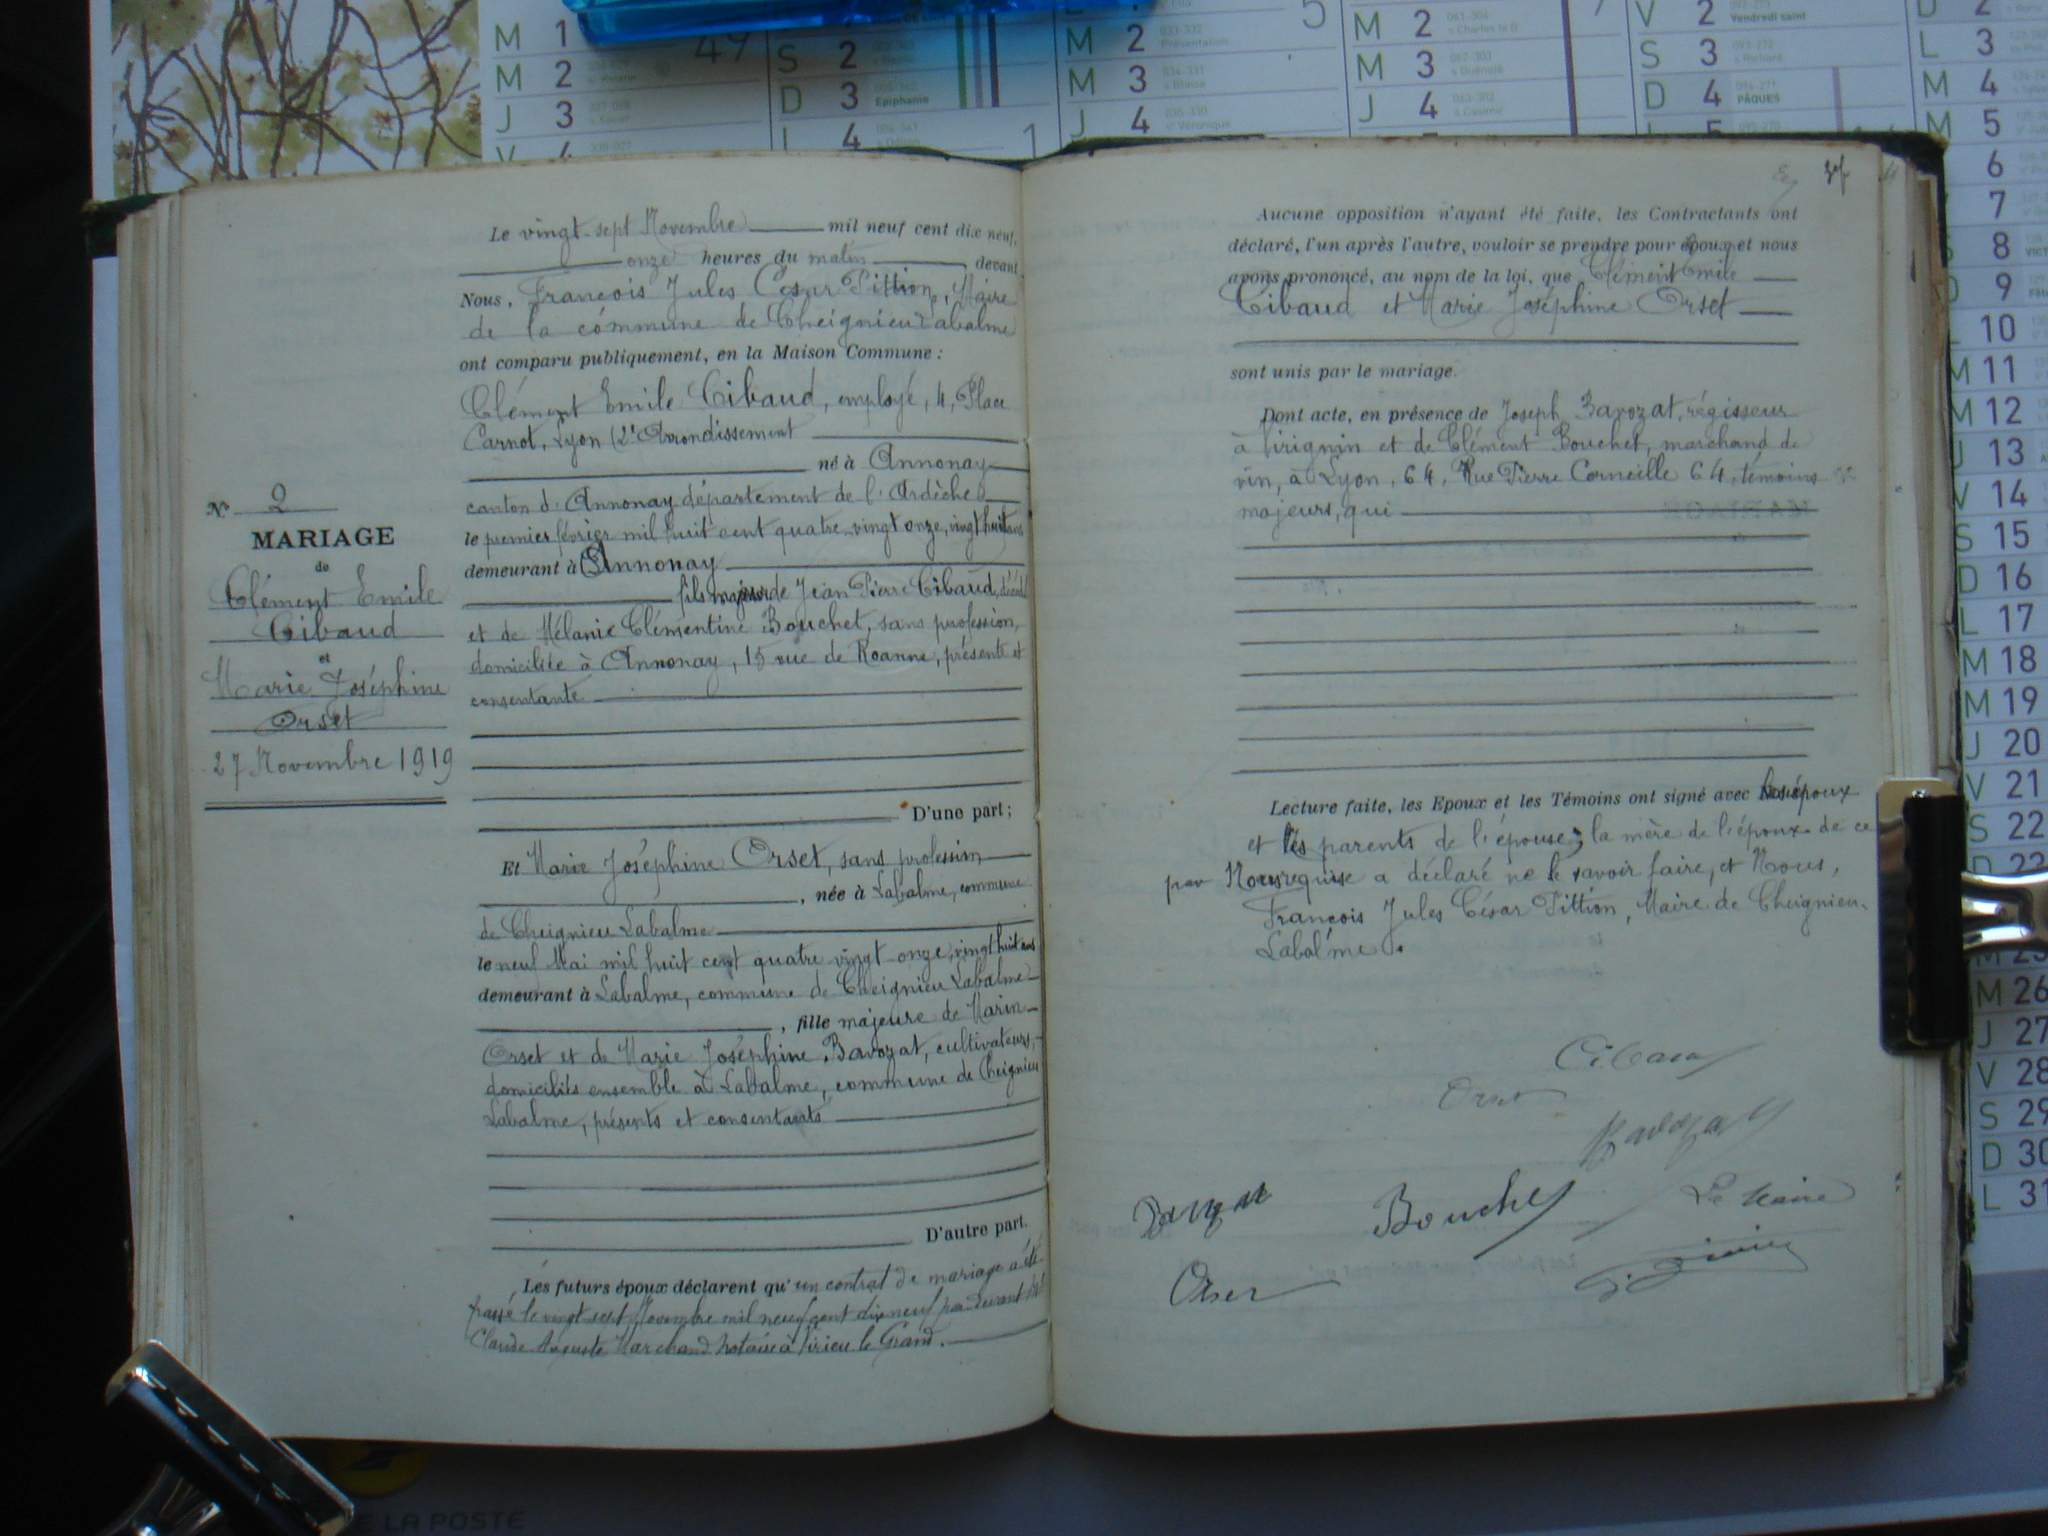 M 1
M 2
J 3
V 4
49
S 2
D 3 Epiphanie
L 4
1
M 2 033-332 Présentation
M 3 034-331 s Blaise
J 4 035-330 sᵉ Véronique
5
M 2 061-304 s Charles le B.
M 3 062-303 s Guénolé
J 4 063-302 s Casimir
V 2 Vendredi saint
S 3 s Richard
D 4 PÂQUES
L 3
M 4
M 5
6
7
8
9
10
M 11
M 12
J 13
V 14
S 15
D 16
L 17
M 18
M 19
J 20
V 21
S 22
M 26
J 27
V 28
S 29
D 30
L 31
Nº 2
MARIAGE
de
Clément Emile
Cibaud
et
Marie Joséphine
Orset
27 Novembre 1919
Le vingt-sept Novembre mil neuf cent dix neuf,
onze heures du matin devant
Nous, François Jules César Pittion, Maire
de la commune de Cheignieu Labalme
ont comparu publiquement, en la Maison Commune :
Clément Emile Cibaud, employé, 4, Place
Carnot, Lyon (2ᵉ Arrondissement
né à Annonay
canton d'Annonay département de l'Ardèche
le premier février mil huit cent quatre-vingt onze, vingt huit ans
demeurant à Annonay
fils majeur de Jean Pierre Cibaud, décédé
et de Mélanie Clémentine Bouchet, sans profession,
domiciliée à Annonay, 15 rue de Roanne, présente et
consentante
D'une part ;
Et Marie Joséphine Orset, sans profession
, née à Labalme, commune
de Cheignieu Labalme
le neuf Mai mil huit cent quatre vingt onze, vingt huit ans
demeurant à Labalme, commune de Cheignieu Labalme
, fille majeure de Marin
Orset et de Marie Joséphine Bavozat, cultivateurs,
domiciliés ensemble à Labalme, commune de Cheignieu
Labalme, présents et consentants
D'autre part.
Les futurs époux déclarent qu'un contrat de mariage a été
passé le vingt sept Novembre mil neuf cent dix neuf par devant Mᵉ
Claude Auguste Marchand notaire à Virieu le Grand.
Aucune opposition n'ayant été faite, les Contractants ont
déclaré, l'un après l'autre, vouloir se prendre pour époux et nous
avons prononcé, au nom de la loi, que Clément Emile
Cibaud et Marie Joséphine Orset
sont unis par le mariage.
Dont acte, en présence de Joseph Bavozat, régisseur
à Virignin et de Clément Bouchet, marchand de
vin, à Lyon, 64, Rue Pierre Corneille 64, témoins
majeurs, qui
Lecture faite, les Epoux et les Témoins ont signé avec les époux
et les parents de l'épouse; la mère de l'époux de ce
par Nous requise a déclaré ne le savoir faire, et Nous,
François Jules César Pittion, Maire de Cheignieu-
Labalme.
Cibaud
Orset
Bavozat
Bavozat
Bouchet
Le Maire
Orset
LA POSTE